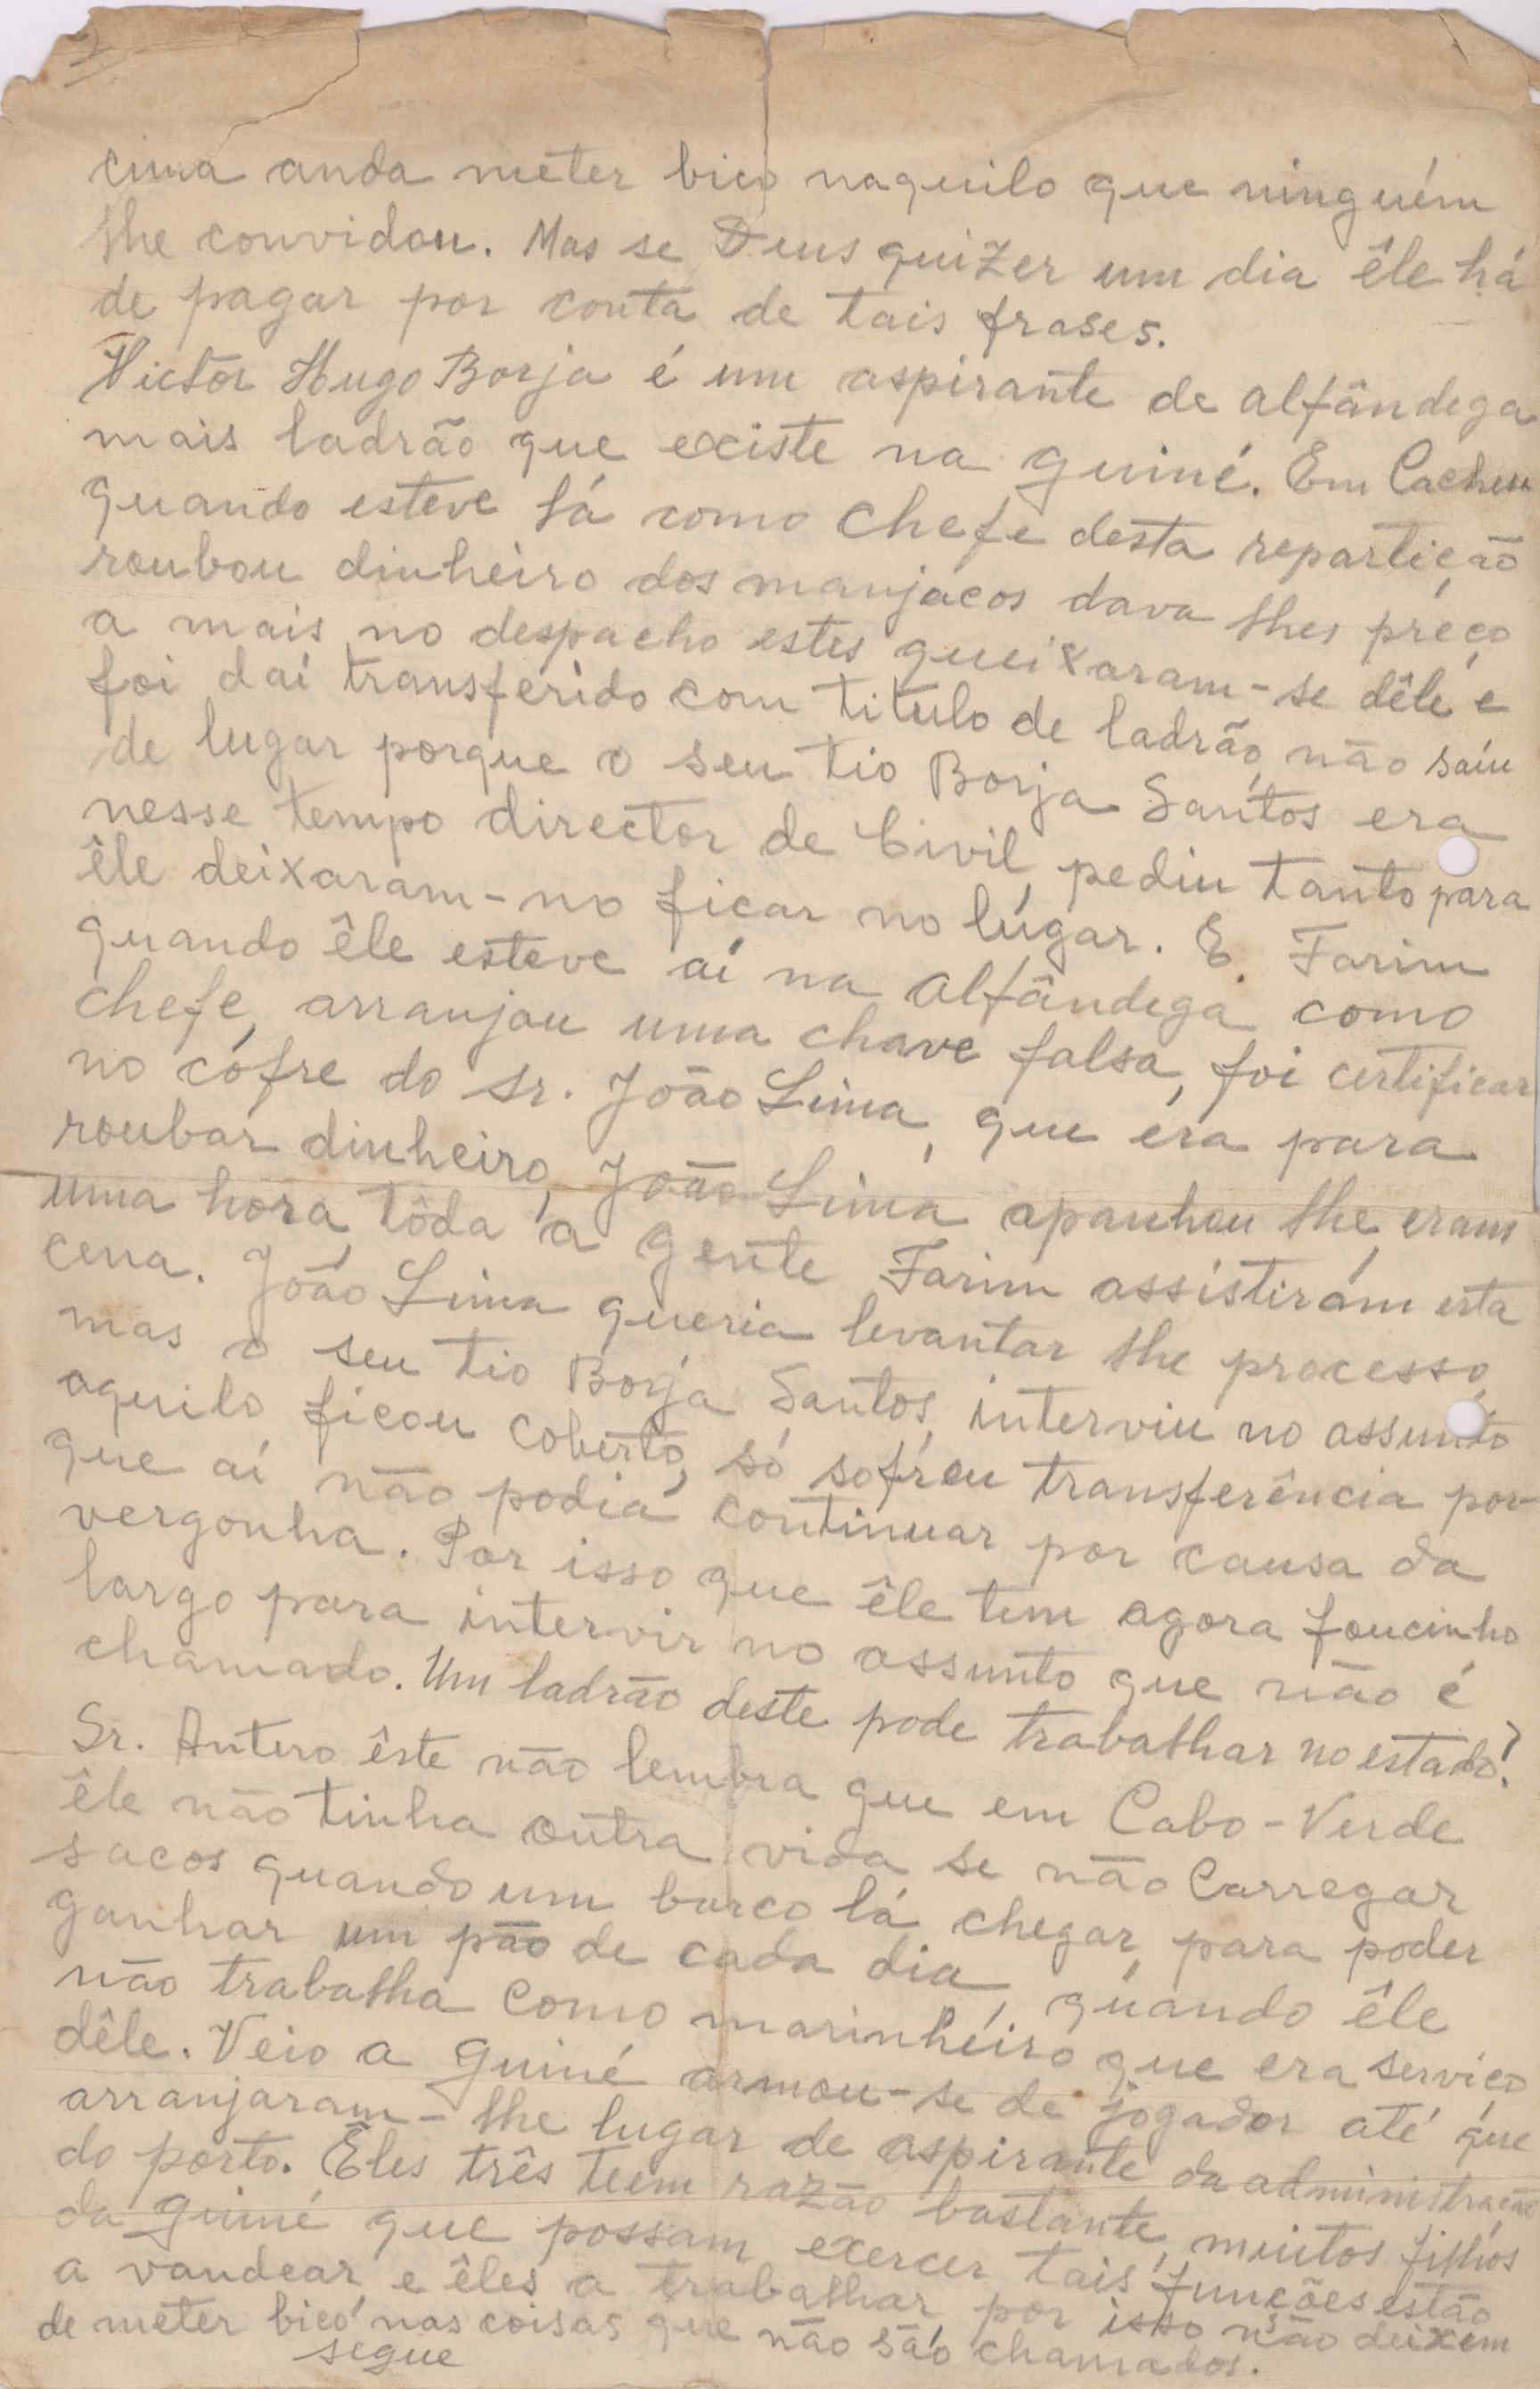 cima anda meter bico naquilo que ninguém
lhe convidou. Mas se Deus quizer um dia êle há
de pagar por conta de tais frases.
Victor Hugo Borja é um aspirante de alfândega
mais ladrão que existe na guiné. Em Cacheu
quando esteve lá como chefe desta repartição
roubou dinheiro dos manjacos dava lhes preço
a mais no despacho estes queixaram-se dêle e
foi daí transferido com titulo de ladrão, não saíu
de lugar porque o seu tio Borja Santos era
nesse tempo director de Civil, pediu tanto para
êle deixaram-no ficar no lugar. E. Farim
quando êle esteve aí na alfândega como
chefe, arranjou uma chave falsa, foi certificar
no cófre do sr. João Lima, que era para
roubar dinheiro, João Lima apanhou lhe, eram
uma hora tôda a gente Farim assistiram esta
cena. João Lima queria levantar lhe processo,
mas o seu tio Borja Santos, interviu no assunto
aquilo ficou coberto, só sofreu transferência por-
que aí não podia continuar por causa da
vergonha. Por isso que êle tem agora foucinho
largo para intervir no assunto que não é
chamado. Um ladrão deste pode trabalhar no estado?
Sr. Antero êste não lembra que em Cabo-Verde
êle não tinha outra vida se não Carregar
sacos quando um barco lá chegar, para poder
ganhar um pão de cada dia, quando êle
não trabalha como marinheiro que era serviço
dêle. Veio a guiné armou-se de jogador até que
arranjaram-lhe lugar de aspirante da administração
do porto. Êles três teem razão bastante, muitos filhos
da guiné que possam exercer tais funções estão
a vandear e êles a trabalhar por isso não deixem
de meter bico nas coisas que não são chamados.
segue